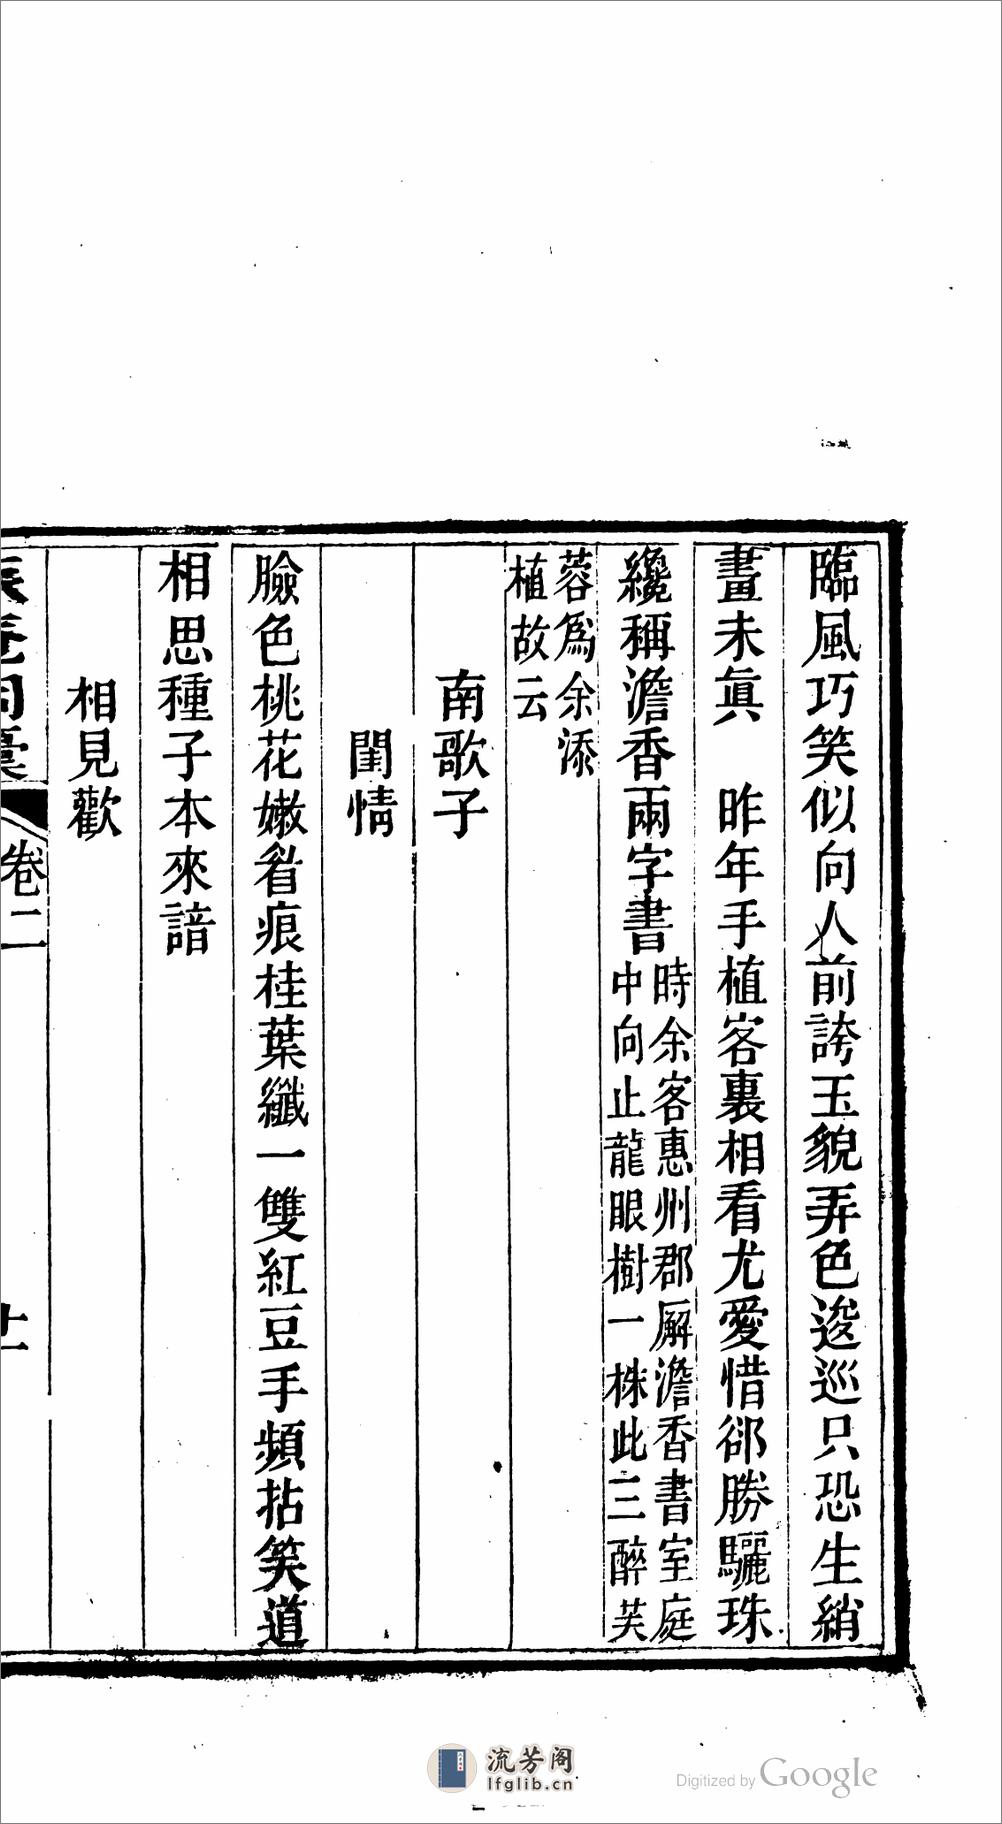 臨風巧笑似向人前誇玉貌弄色逡巡只恐生綃
畫未眞　昨年手植客裏相看尤愛惜郤勝驪珠
纔稱澹香兩字書
時余客惠州郡廨澹香書室庭
中向止龍眼樹一株此三醉芙
蓉爲余添
植故云
南歌子
閨情
臉色桃花嫩眉痕桂葉纖一雙紅豆手頻拈笑道
相思種子本來諳
相見歡
卷二
流芳阁
lfglib.cn
Digitized by Google